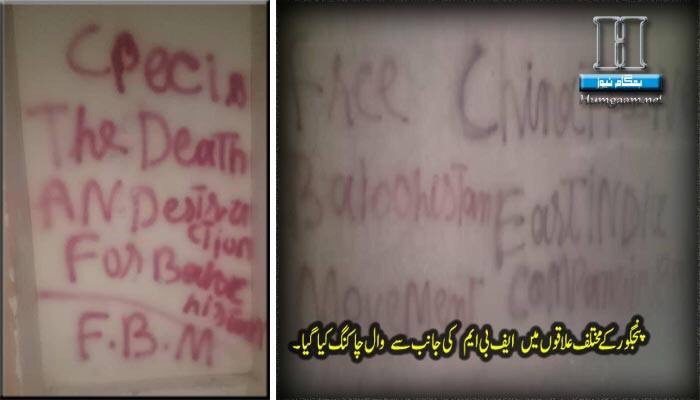 CPEC is
The Death
AN.Destra
ction
For Baloc
histan
F.B.M
H
ہمگام نیوز
Humgaam.net
Free
Balochistan
Movement
East India
پنجگور کے مختلف علاقوں میں ایف بی ایم کی جانب سے وال چاکنگ کیا گیا۔